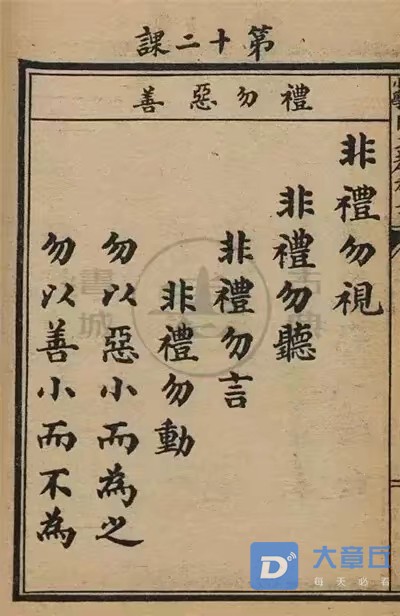 第十二課
禮勿惡善
非禮勿視
非禮勿聽
非禮勿言
非禮勿動
勿以惡小而為之
勿以善小而不為
書城
古典
大章丘
每天必看